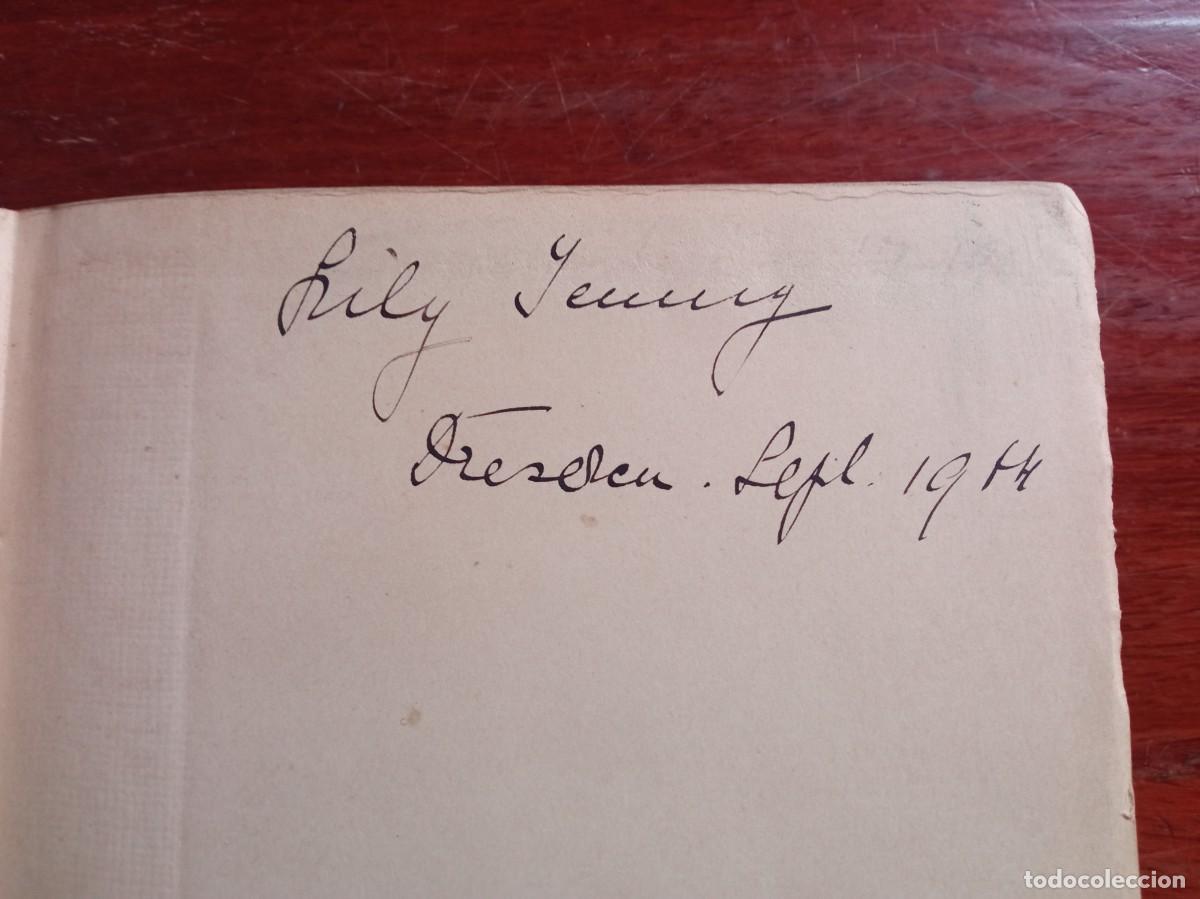 Lily Jenny
Dresden. Sept. 1914
todocoleccion